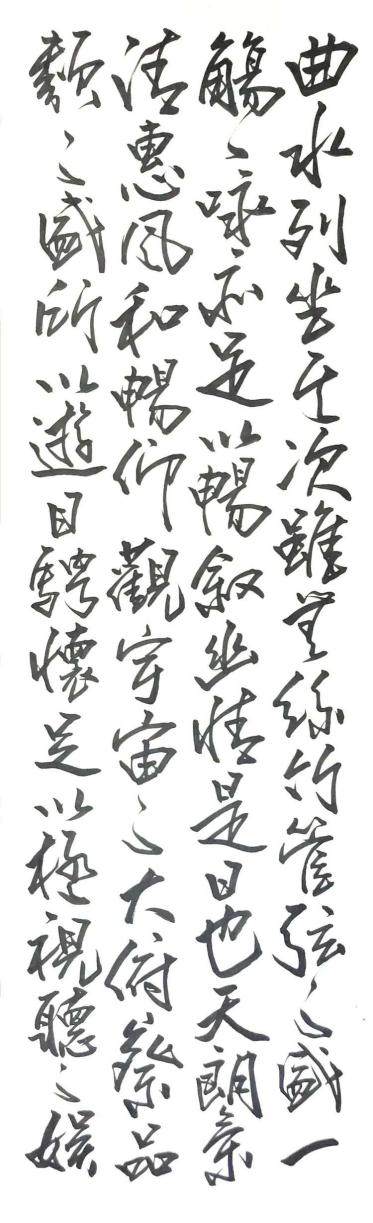 曲水列坐其次雖無絲竹管弦之盛一
觴之咏亦足以暢叙幽情是日也天朗氣
清惠風和暢仰觀宇宙之大俯察品
類之盛所以遊目騁懷足以極視聽之娛